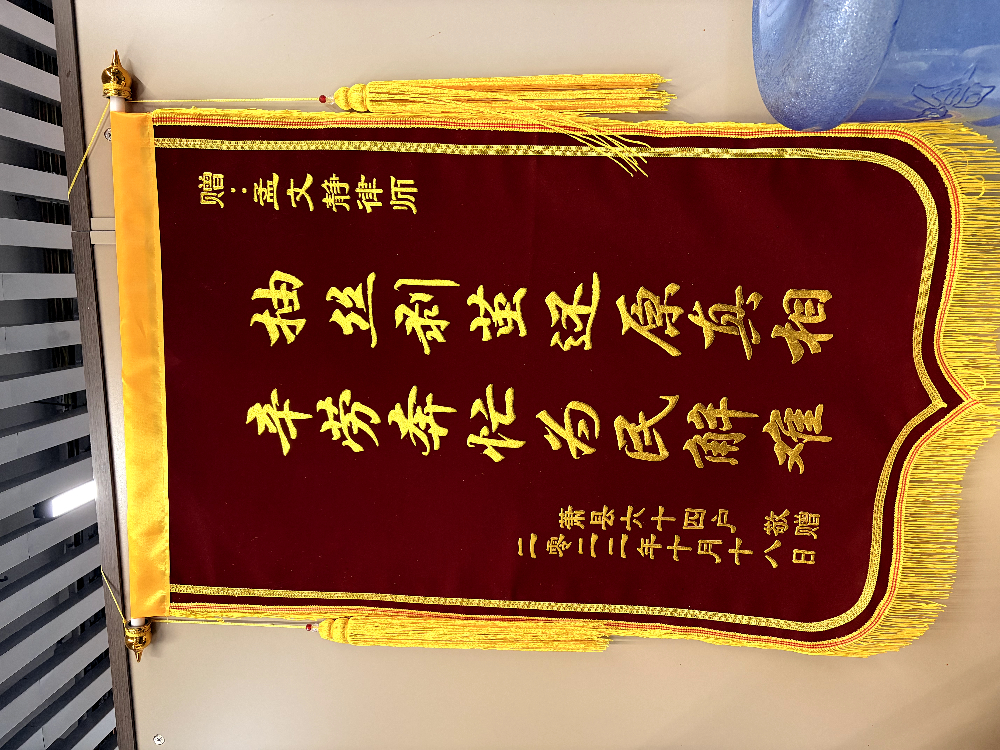 赠：孟文静律师
抽丝剥茧还原真相
辛劳奔忙为民解难
萧县六十四户 敬赠
二零二二年十月十八日